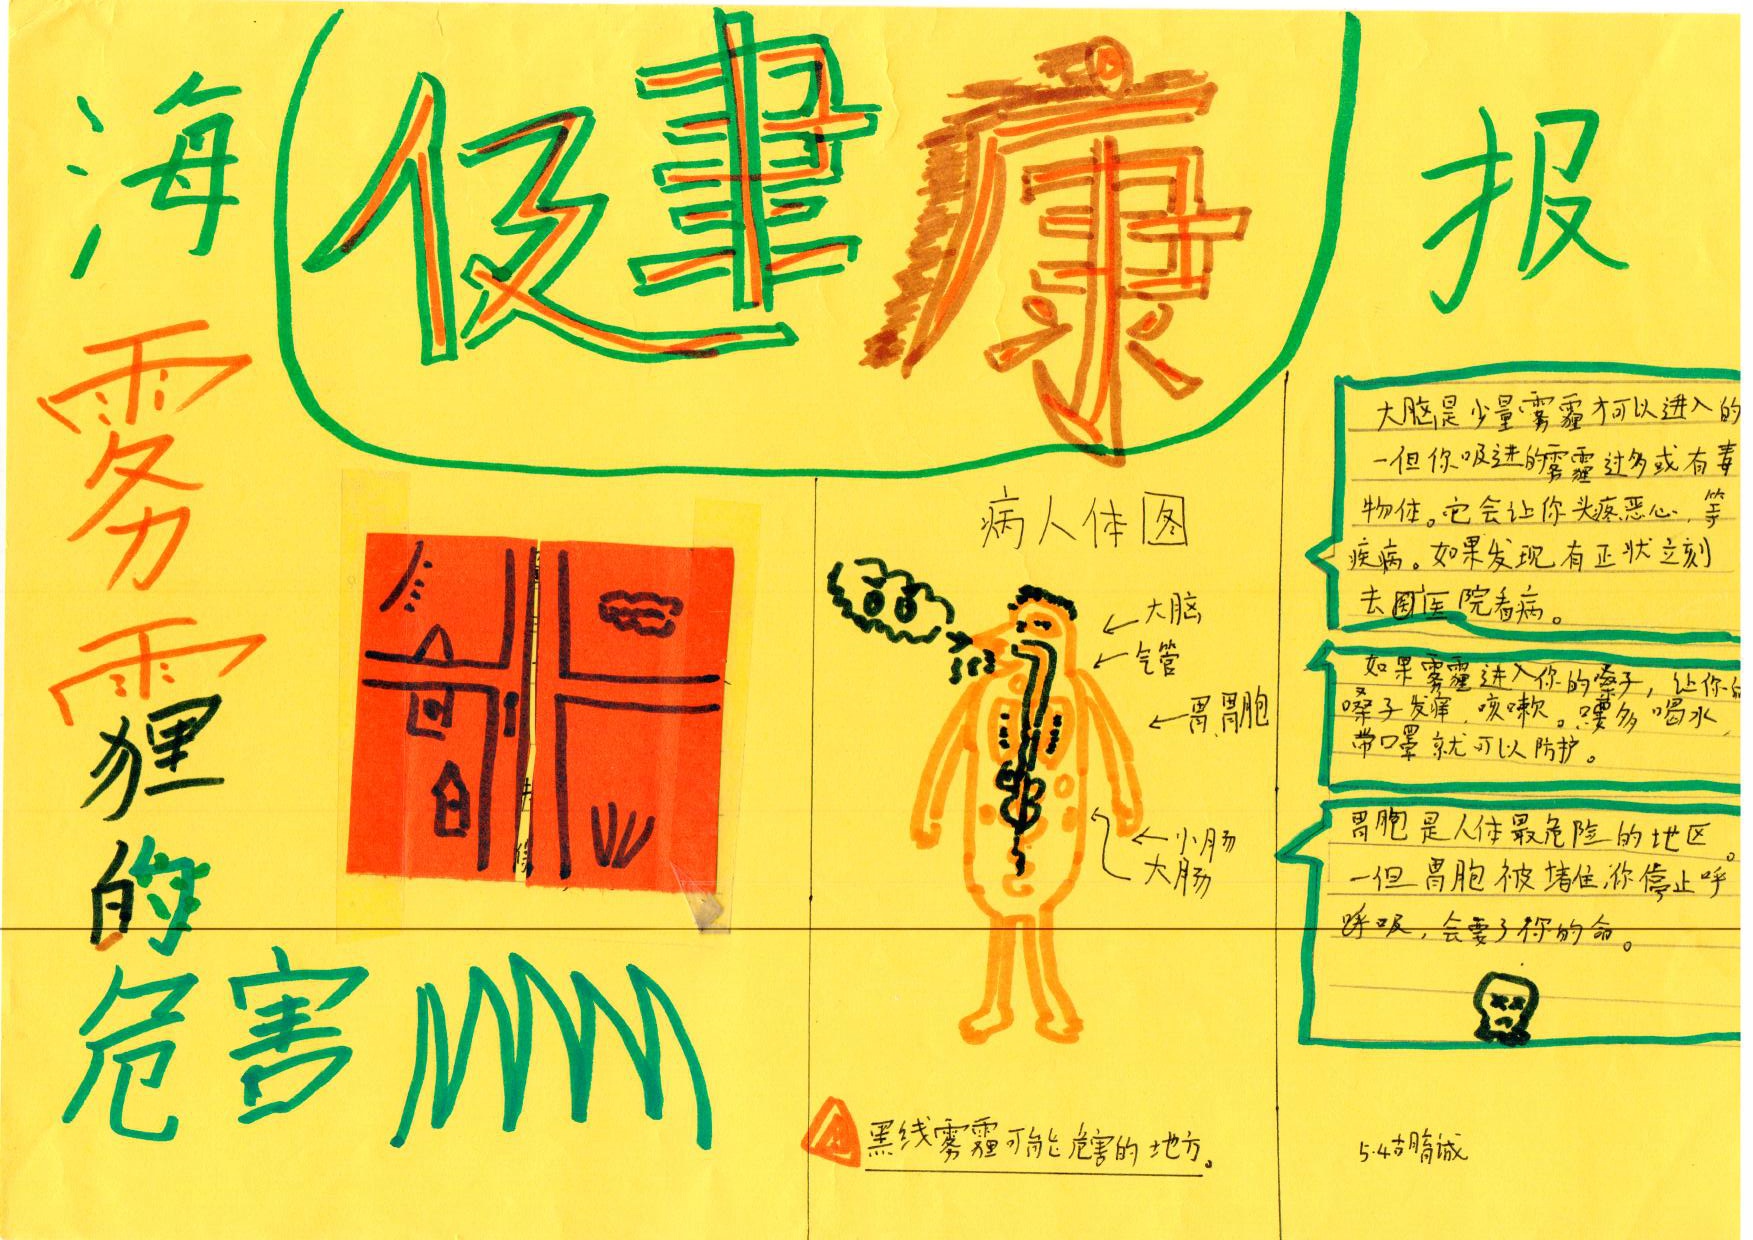 海 健康 报
雾
霾
的
危害
病人体图
大脑
气管
胃胃胞
小肠
大肠
黑线雾霾可能危害的地方。
大脑是少量雾霾才可以进入的
一但你吸进的雾霾过多或有毒
物体。它会让你头疼恶心,等
疾病。如果发现有正状立刻
去医院看病。
如果雾霾进入你的嗓子,让你的
嗓子发痒,咳嗽。要多喝水,
带口罩就可以防护。
胃胞是人体最危险的地区。
一但胃胞被堵住,你停止呼
呼吸,会要了你的命。